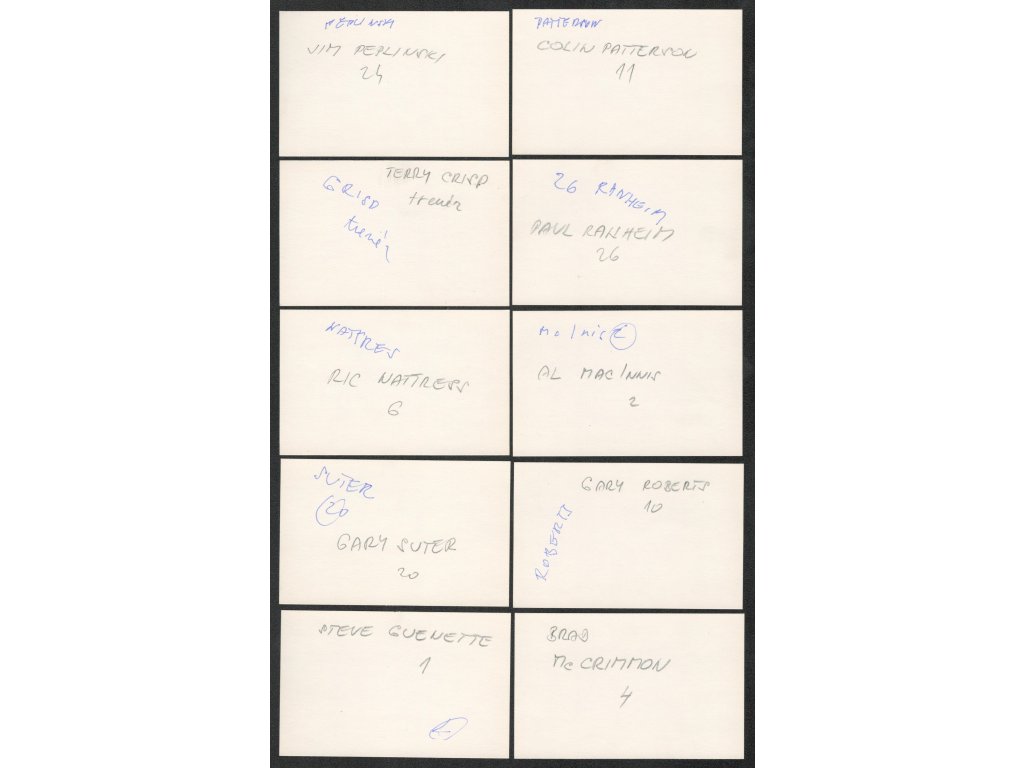 PEPLINSKI
JIM PEPLINSKI
24
PATTERSON
COLIN PATTERSON
11
TERRY CRISP
trenér
CRISP
trenér
26 RANHEIM
PAUL RANHEIM
26
NATTRES
RIC NATTRESS
6
Mc Inis 2
AL MAC INNIS
2
SUTER
20
GARY SUTER
20
GARY ROBERTS
10
ROBERTS
STEVE GUENETTE
1
BRAD
Mc CRIMMON
4